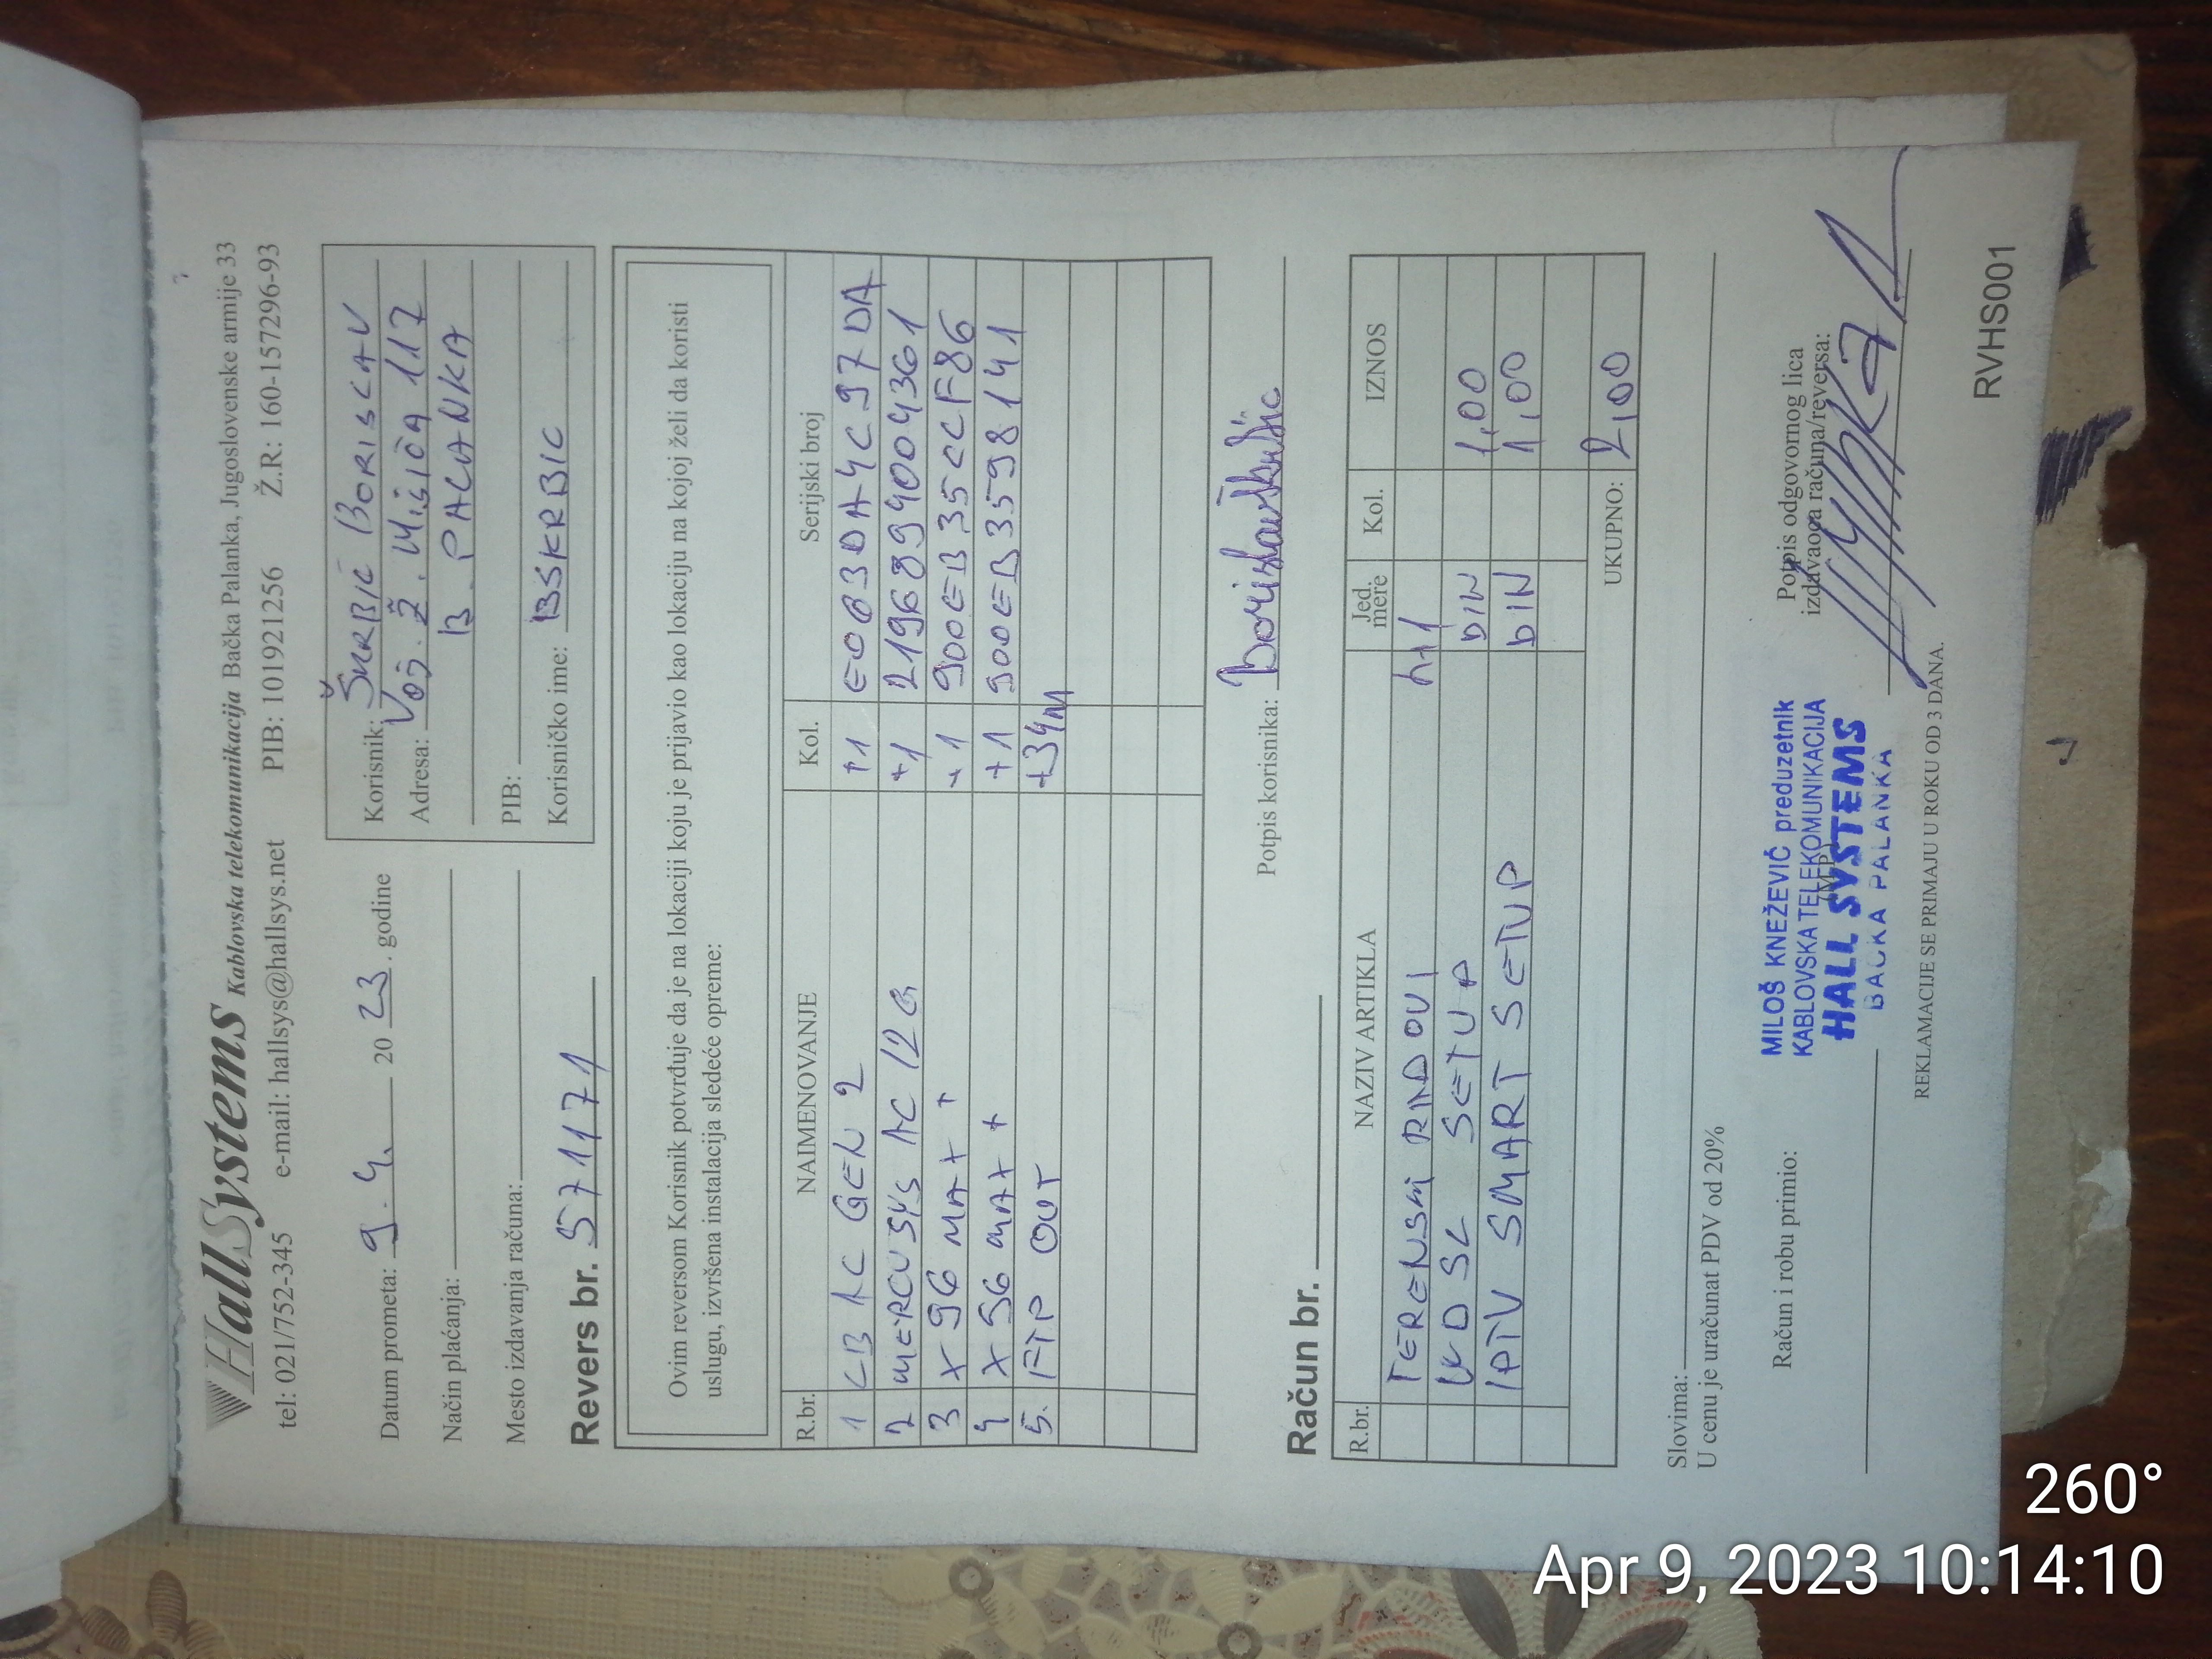 HallSystems Kablovska telekomunikacija Bačka Palanka, Jugoslovenske armije 33
tel: 021/752-345 e-mail: hallsys@hallsys.net PIB: 101921256 Ž.R.: 160-157296-93
Datum prometa: 9. 4. 20 23. godine
Način plaćanja:
Mesto izdavanja računa:
Korisnik: ŠKRBIĆ BORISLAV
Adresa: VOJ. Ž. MIŠIĆA 117
B. PALANKA
PIB:
Korisničko ime: BSKRBIC
Revers br. 571171
Ovim reversom Korisnik potvrđuje da je na lokaciji koju je prijavio kao lokaciju na kojoj želi da koristi
uslugu, izvršena instalacija sledeće opreme:
R.br. NAIMENOVANJE Kol. Serijski broj
1 LB AC GEN 2 +1 E063DA4C97DA
2 MERCUSYS AC12G +1 2196894004361
3 X96 MAX + +1 900EB35CCF86
4 X96 MAX + +1 900EB3598141
5. FTP OUT +34M
Potpis korisnika: Borislav Škrbić
Račun br.
R.br. NAZIV ARTIKLA Jed. mere Kol. IZNOS
TERENSKI RADOVI h1
WDSL SETUP DIN 1,00
IPTV SMART SETUP DIN 1,00
UKUPNO: 2,00
Slovima:
U cenu je uračunat PDV od 20%
Račun i robu primio:
(M.P.)
MILOŠ KNEŽEVIĆ preduzetnik
KABLOVSKA TELEKOMUNIKACIJA
HALL SYSTEMS
BAČKA PALANKA
Potpis odgovornog lica
izdavaoca računa/reversa:
REKLAMACIJE SE PRIMAJU U ROKU OD 3 DANA.
RVHS001
260°
Apr 9, 2023 10:14:10